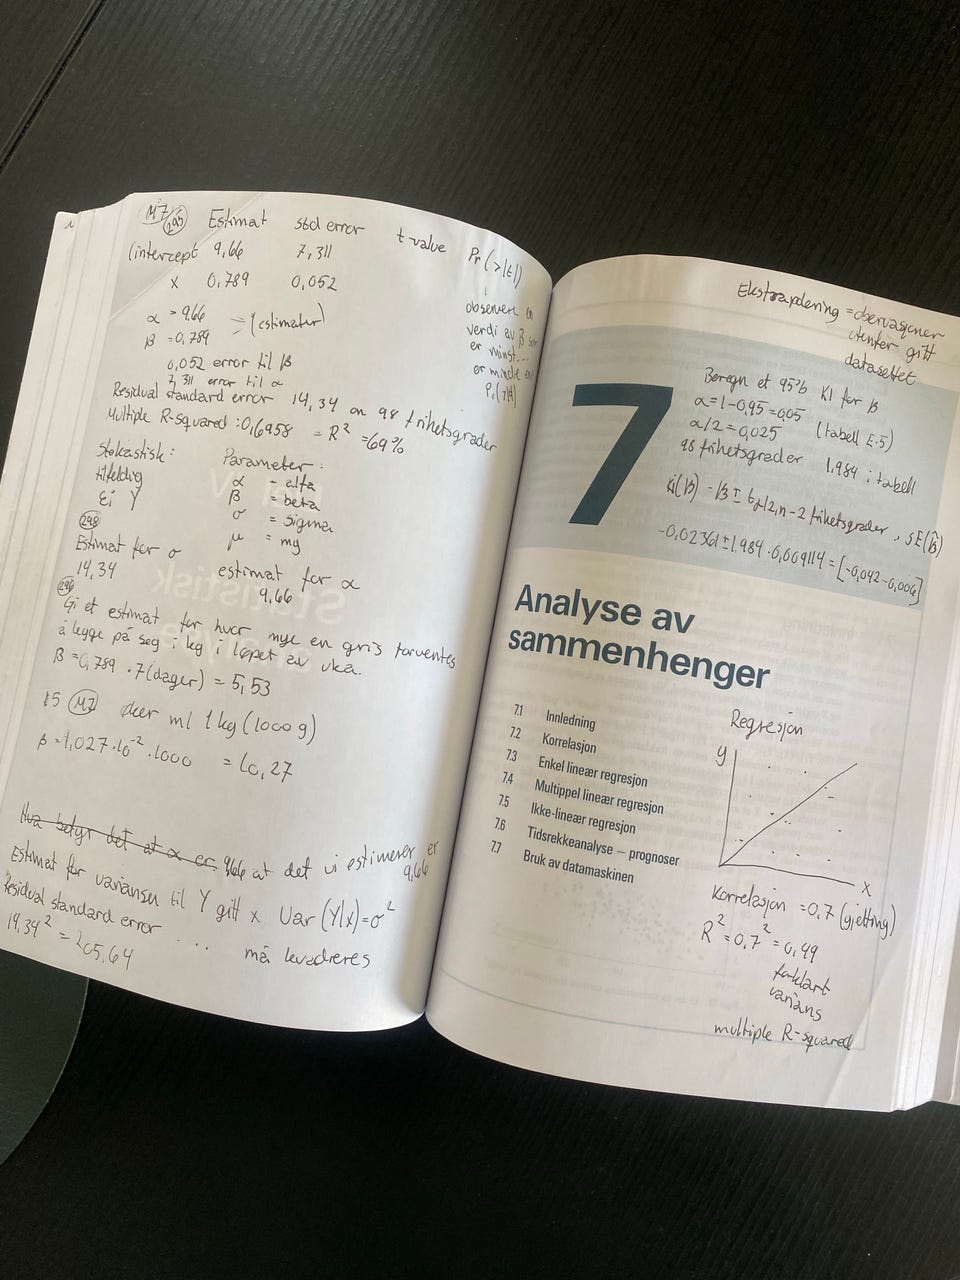 M7
Estimat std error t-value Pr(>|t|)
(intercept 9,66 7,311
x 0,789 0,052
observere en
verdi av β som
er minst...
er mindre enn
α = 9,66
β = 0,789
(estimater)
0,052 error til β
7,311 error til α
Residual standard error 14,34 on 98 frihetsgrader
Multiple R-squared: 0,6958 = R² = 69%
Stokastisk:
tilfeldig
Ei Y
Parameter:
α - alfa
β = beta
σ = sigma
μ = my
298
Estimat for σ
14,34
estimat for α
9,66
296
Gi et estimat for hvor mye en gris forventes
å legge på seg i kg i løpet av uka.
β = 0,789 · 7 (dager) = 5,53
M7 1 kg (1000 g)
β = 1,027·10⁻² · 1000 = 10,27
Hva betyr det at α er 9,66 at det vi estimerer er
9,66
Estimat for variansen til Y gitt x Var(Y|x) = σ²
Residual standard error ....
14,34² = 205,64 må kvadreres
Ekstrapolering = observasjoner
utenfor gitt
datasettet
7
Beregn et 95% KI for β
α = 1-0,95 = 0,05
α/2 = 0,025 (tabell E.5)
98 frihetsgrader 1.984 i tabell
KI(β) - β ± tα/2, n-2 frihetsgrader, SE(β̂)
-0,02361 ± 1.984 · 0,009114 = [-0,042 -0,006]
Analyse av
sammenhenger
7.1 Innledning
7.2 Korrelasjon
7.3 Enkel lineær regresjon
7.4 Multippel lineær regresjon
7.5 Ikke-lineær regresjon
7.6 Tidsrekkeanalyse – prognoser
7.7 Bruk av datamaskinen
Regresjon
y
x
Korrelasjon = 0,7 (gjetting)
R² = 0,7² = 0,49
forklart
varians
multiple R-squared